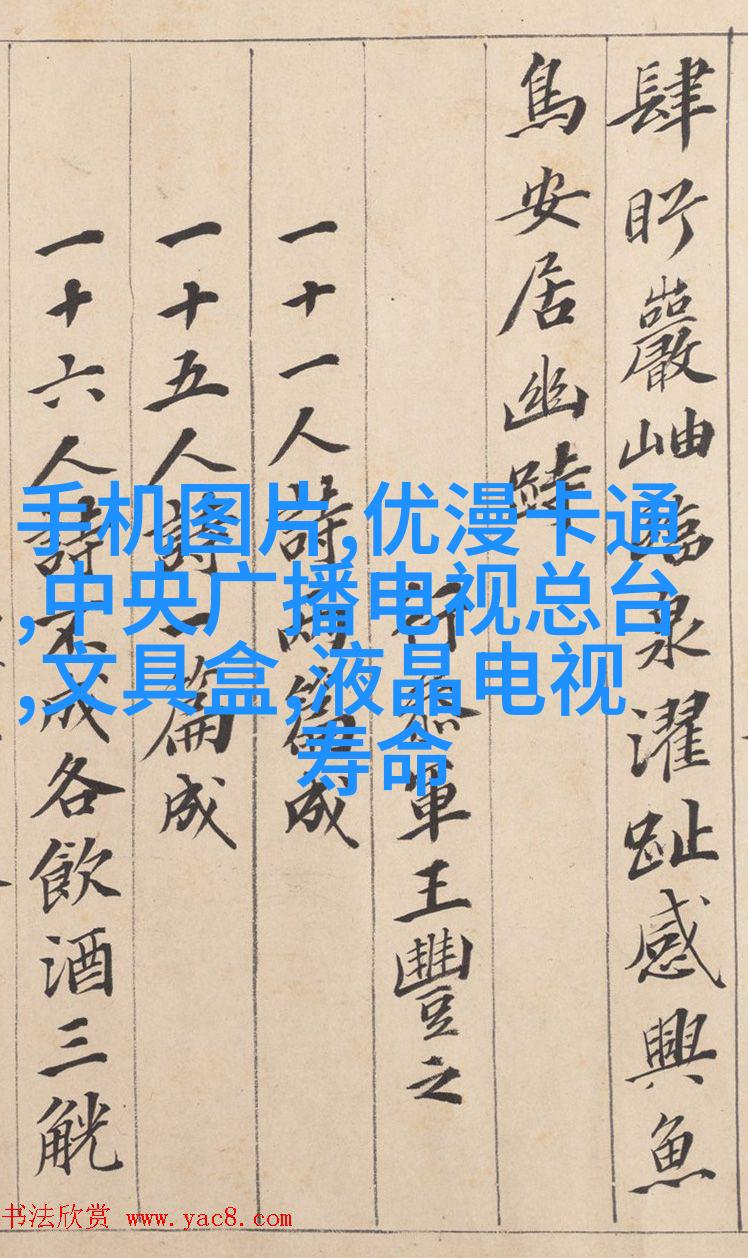 肆眄巖岫臨泉濯趾感興魚
鳥安居幽跱
行參軍王豐之
一十一人詩兩篇成
一十五人詩一篇成
一十六人詩不成各飲酒三觥
手机图片,优漫卡通
,中央广播电视总台
,文具盒,液晶电视
寿命
书法欣赏 www.yac8.com